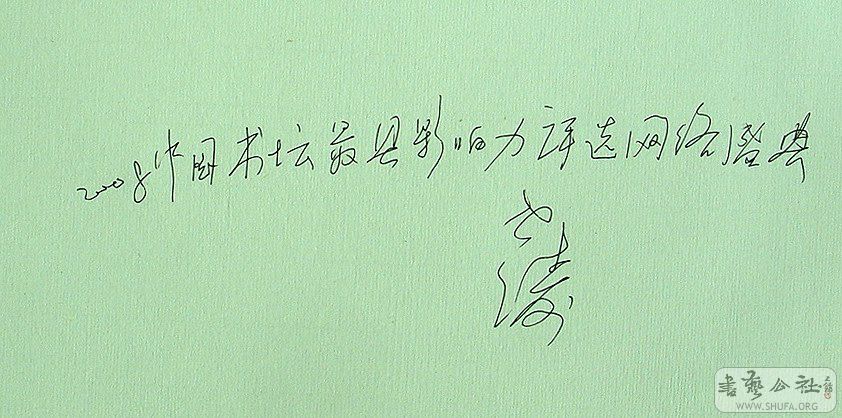 2008中国书坛最具影响力评选网络盛典
書藝公社
WWW.SHUFA.ORG